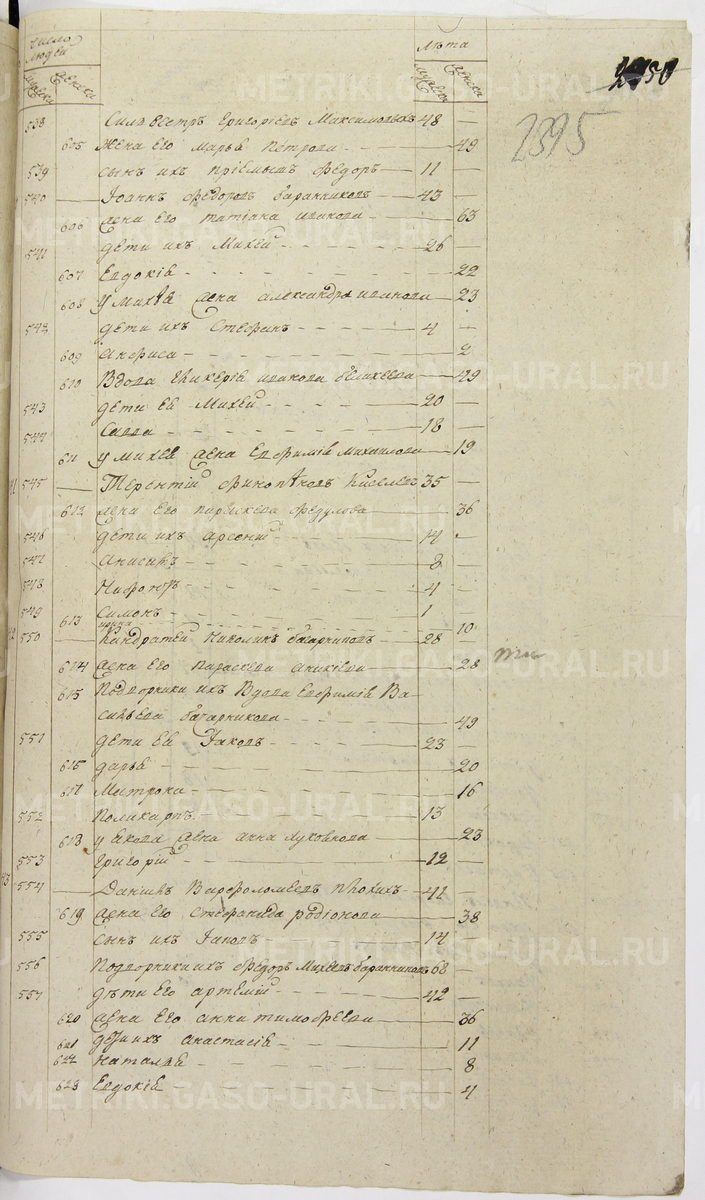 число людей лѣта
мужеска женска мужеска женска
2250
2395
538 Силвестръ Григорьевъ Максимовыхъ 48 —
605 Жена его Марья Петрова — 49
539 сынъ ихъ приемышъ Федоръ 11 —
540 Иоаннъ Федоровъ баранниковъ 43 —
606 жена его татіана иванова 63
541 дети ихъ Михей 26
607 Евдокія 22
608 у Михѣя жена александра иванова 23
542 дети ихъ Стефанъ 4 —
609 анфиса 2
610 Вдова Гликерія иванова 49
543 дети ея Михей 20
544 Савва 18
611 у михея жена Ефимія михайлова 19
545 Терентій Киселевъ 35 —
612 жена его параскева федулова 36
546 дети ихъ арсений 14 —
547 анисимъ 8 —
548 Никифоръ 4 —
549 Симонъ 1
613 10
550 Кандратей Николинъ 28 —
614 жена его Параскева аникіева 28
615 Подворники ихъ Вдова Ефимія Ва-
сильева 49
551 дети ея Іаковъ 23 —
616 дарья 20
617 Матрона 16
552 Поликарпъ 13
618 у Якова жена анна 23
553 Григорій 12 —
554 Даниилъ Варфоломеевъ плохихъ 41 —
619 жена его Стефанида родіонова 38
555 сынъ ихъ Іаковъ 14 —
556 Подворники ихъ Федоръ Михеевъ баранниковъ 68 —
557 дѣти его артемій 42 —
620 жена его анна тимофеева 36
621 дети ихъ анастасія 11
622 наталья 8
623 Евдокія 4
METRIKI.GASO-URAL.RU